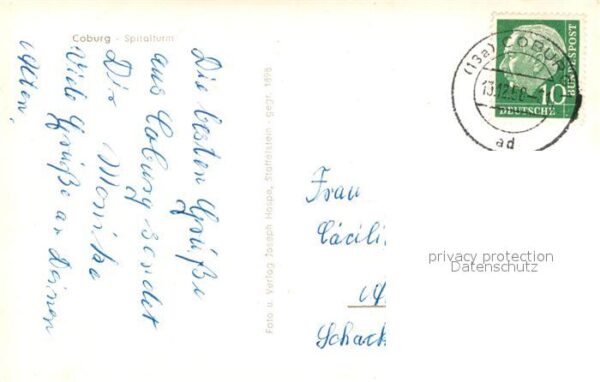 Coburg - Spitalturm
Die besten Grüße
aus Coburg sendet
Dir
Monika
Viele Grüße an Deinen
Alten.
Foto u. Verlag Joseph Haspe, Staffelstein - gegr. 1896
(13a) COBURG
13.12.
ad
10
DEUTSCHE
BUNDESPOST
Frau
Cäcili
Schack
privacy protection
Datenschutz